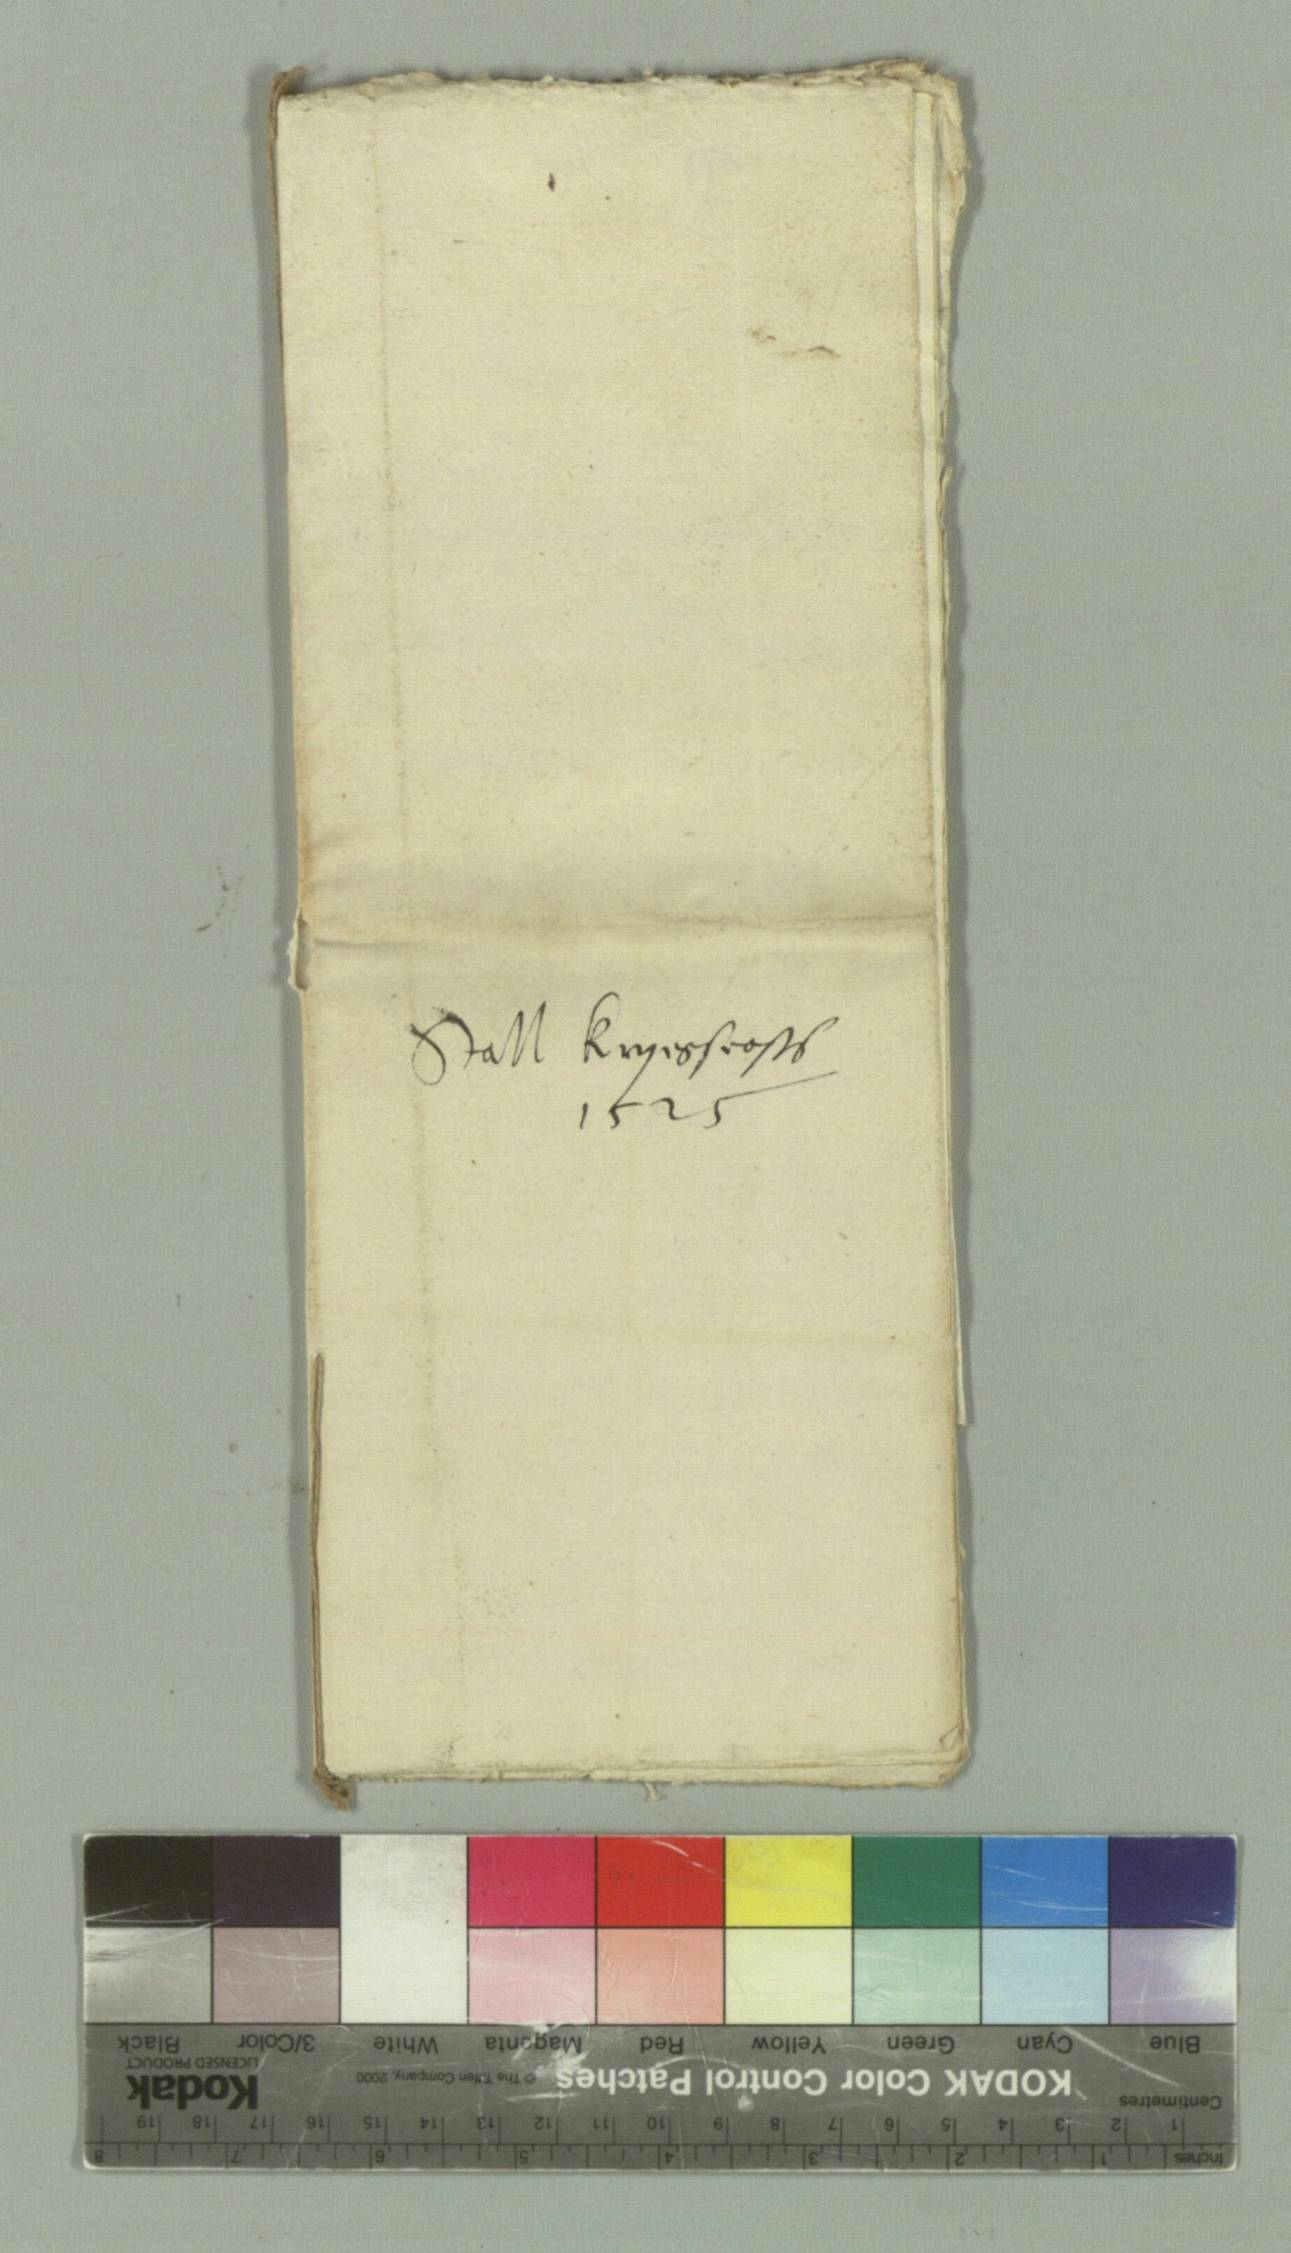 Stall
1525
Black
3/Color
White
Magenta
Red
Yellow
Green
Cyan
Blue
Kodak
LICENSED PRODUCT
© The Tiffen Company, 2000
KODAK Color Control Patches
Centimetres
1 2 3 4 5 6 7 8 9 10 11 12 13 14 15 16 17 18 19
Inches
1 2 3 4 5 6 7 8